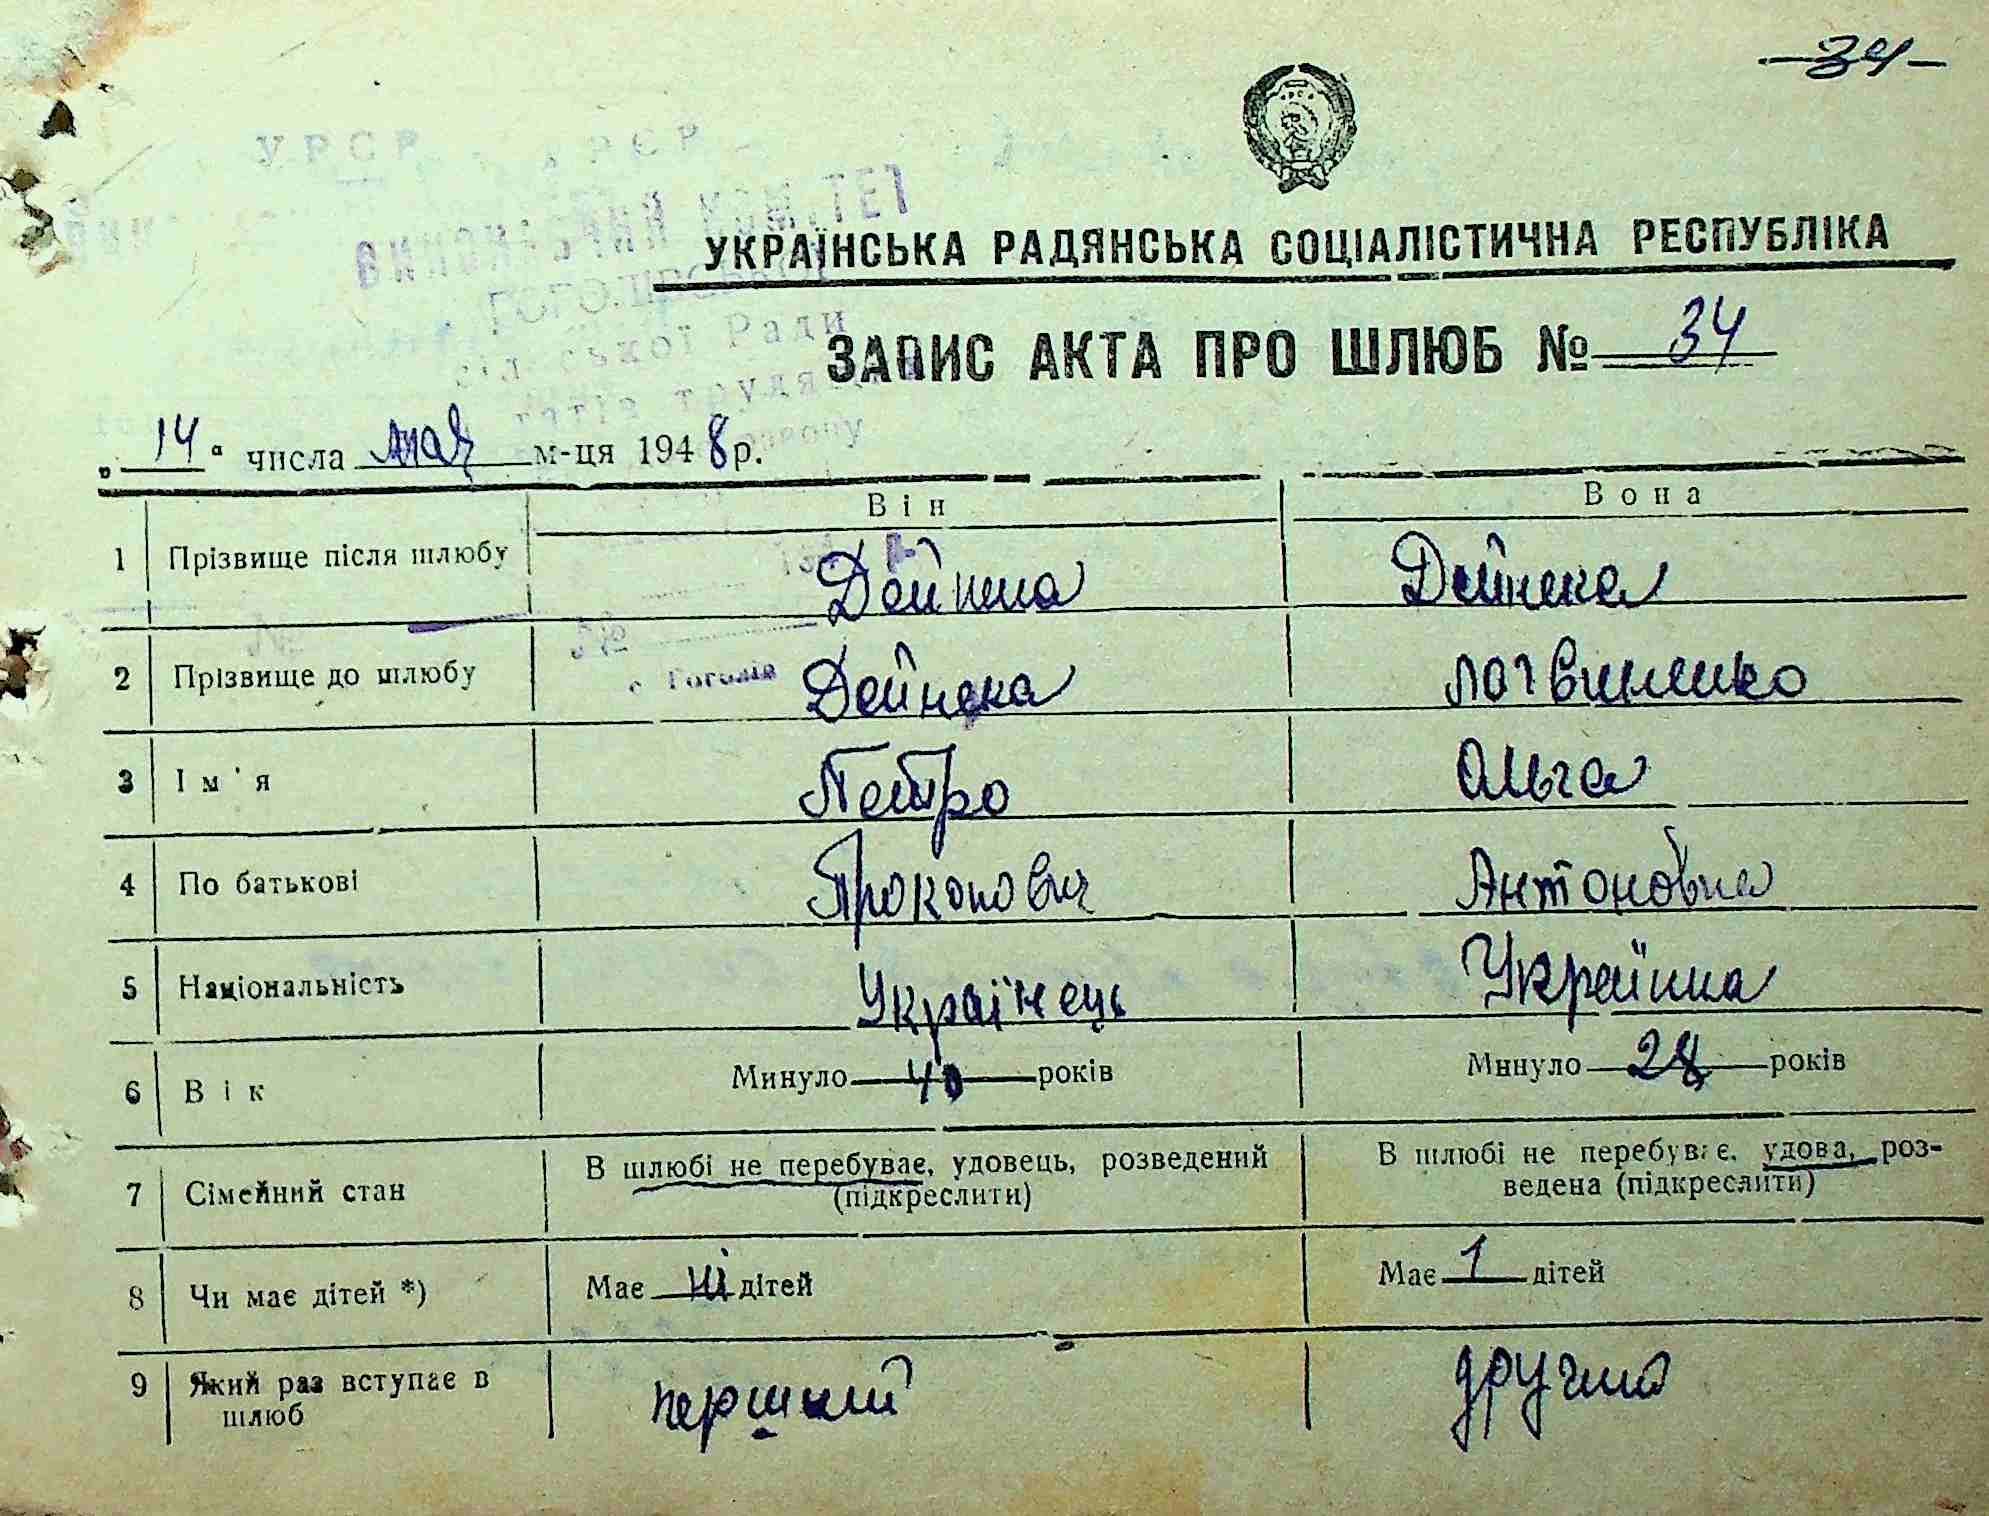 -34-
УРСР
ВИКОНАВЧИЙ КОМІТЕТ
УКРАЇНСЬКА РАДЯНСЬКА СОЦІАЛІСТИЧНА РЕСПУБЛІКА
сільської Ради
ЗАПИС АКТА ПРО ШЛЮБ № 34
„14“ числа мая м-ця 1948 р.
Він Вона
1 Прізвище після шлюбу Дейнека Дейнека
№ №
с Гоголів
2 Прізвище до шлюбу Дейнека Логвиненко
3 Ім'я Петро Ольга
4 По батькові Прокопович Антоновна
5 Національність Українець Українка
6 Вік Минуло 40 років Минуло 28 років
7 Сімейний стан В шлюбі не перебуває, удовець, розведений (підкреслити) В шлюбі не перебуває, удова, роз-
ведена (підкреслити)
8 Чи має дітей *) Має ні дітей Має 1 дітей
9 Який раз вступає в шлюб перший друга